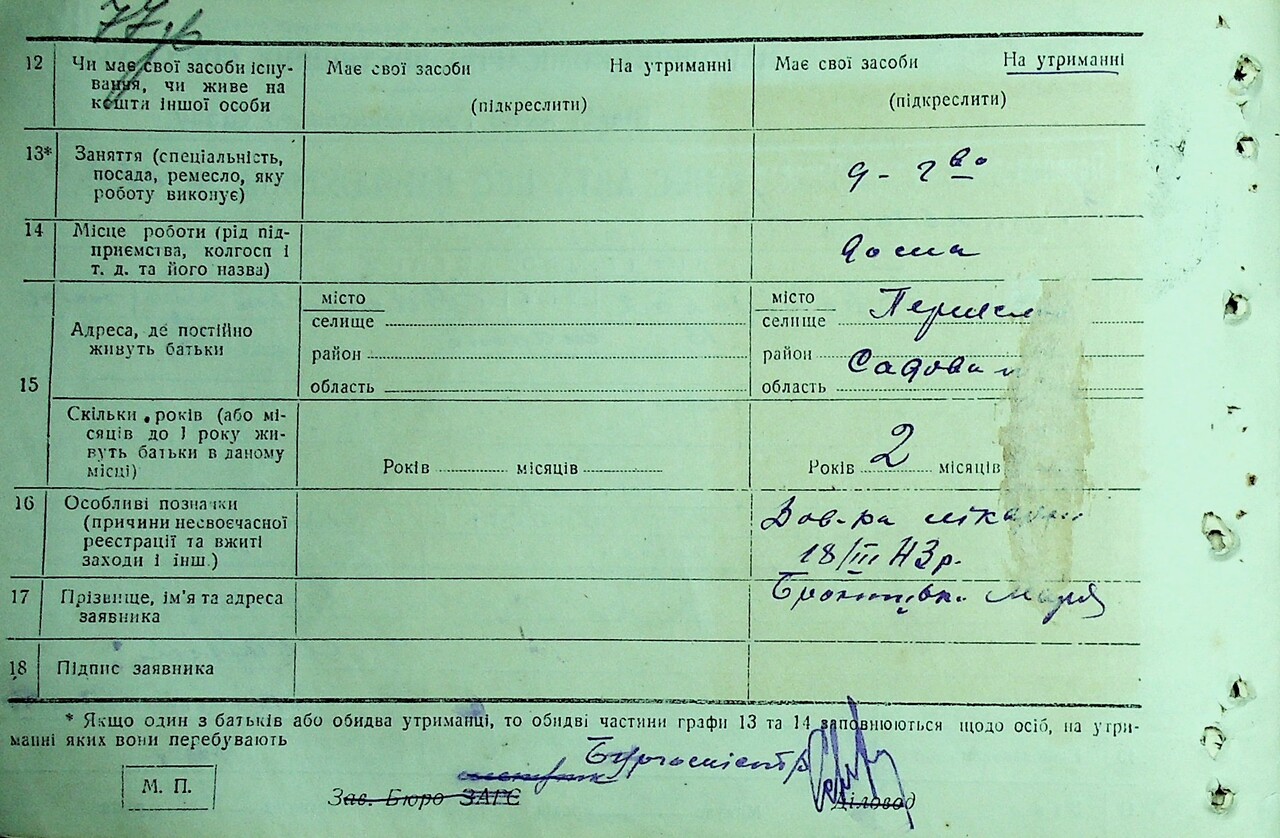 77
12 Чи має свої засоби існу-
вання, чи живе на
кошти іншої особи
Має свої засоби На утриманні
(підкреслити)
Має свої засоби На утриманні
(підкреслити)
13* Заняття (спеціальність,
посада, ремесло, яку
роботу виконує)
д - г во
14 Місце роботи (рід під-
приємства, колгосп і
т. д. та його назва)
дома
15
Адреса, де постійно
живуть батьки
місто
селище
район
область
місто
селище
район
область
Скільки років (або мі-
сяців до 1 року жи-
вуть батьки в даному
місці)
Років місяців
Років 2 місяців
16 Особливі позначки
(причини несвоєчасної
реєстрації та вжиті
заходи і інш.)
18/III 43 р.
17 Прізвище, ім'я та адреса
заявника
Марія
18 Підпис заявника
* Якщо один з батьків або обидва утриманці, то обидві частини графи 13 та 14 заповнюються щодо осіб, на утри-
манні яких вони перебувають
Бургомістр
М. П.
Зав. Бюро ЗАГС Діловод